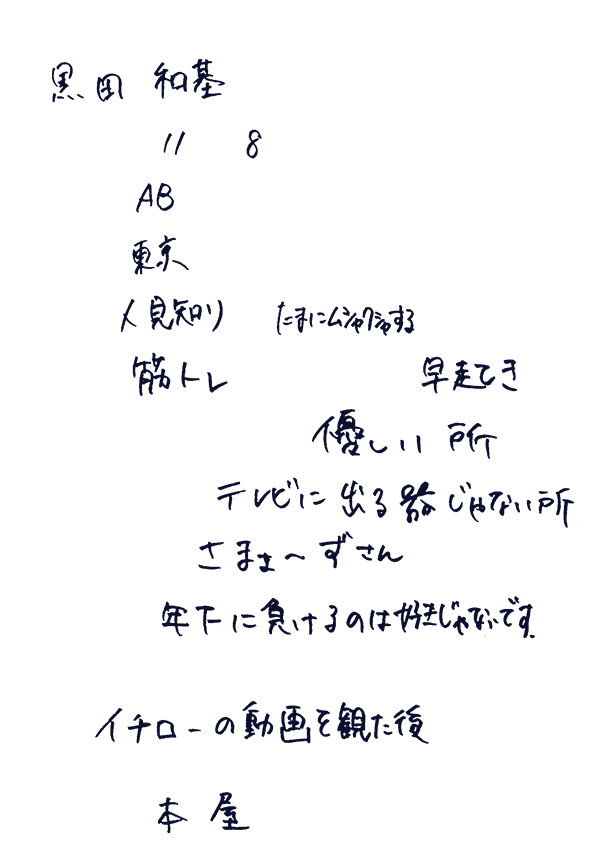 黒田 和基
11 8
AB
東京
人見知り たまにムシャクシャする
筋トレ 早起き
優しい所
テレビに出る器じゃない所
さまぁ〜ずさん
年下に負けるのは好きじゃないです。
イチローの動画を観た後
本屋